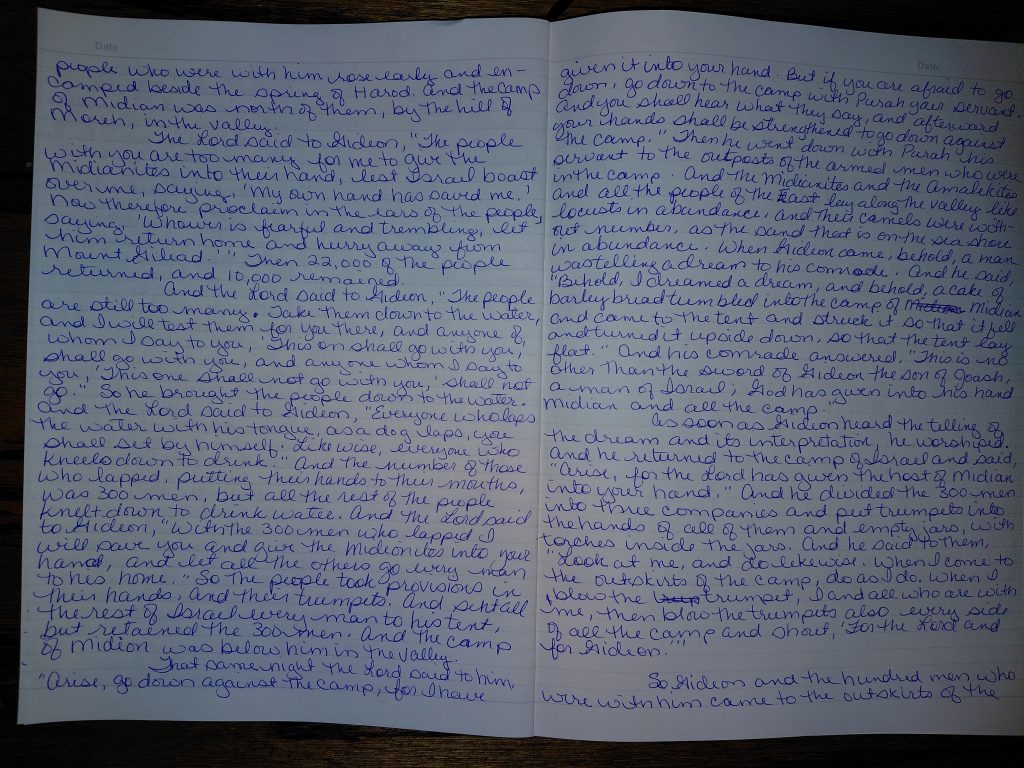 Date:
people who were with him rose early and en-
camped beside the spring of Harod. And the camp
of Midian was north of them, by the hill of
Moreh, in the valley.
The Lord said to Gideon, "The people
with you are too many for me to give the
Midianites into their hand, lest Israel boast
over me, saying, 'My own hand has saved me.'
Now therefore proclaim in the ears of the people,
saying, 'Whoever is fearful and trembling, let
him return home and hurry away from
Mount Gilead.'" Then 22,000 of the people
returned, and 10,000 remained.
And the Lord said to Gideon, "The people
are still too many. Take them down to the water,
and I will test them for you there, and anyone of
whom I say to you, 'This on shall go with you,'
shall go with you, and anyone whom I say to
you, 'This one shall not go with you,' shall not
go." So he brought the people down to the water.
And the Lord said to Gideon, "Everyone who laps
the water with his tongue, as a dog laps, you
shall set by himself. Likewise, everyone who
kneels down to drink." And the number of those
who lapped, putting their hands to their mouths,
was 300 men, but all the rest of the people
knelt down to drink water. And the Lord said
to Gideon, "With the 300 men who lapped I
will save you and give the Midionites into your
hand, and let all the others go every man
to his home." So the people took provisions in
their hands, and their trumpets. And sent all
the rest of Israel every man to his tent,
but retained the 300 men. And the camp
of Midion was below him in the valley.
That same night the Lord said to him,
"Arise, go down against the camp, for I have
Date:
given it into your hand. But if you are afraid to go
down, go down to the camp with Purah your servant.
And you shall hear what they say, and afterward
your hands shall be strengthened to go down against
the camp." Then he went down with Purah his
servant to the outposts of the armed men who were
in the camp. And the Midianites and the Amalekites
and all the people of the East lay along the valley like
locusts in abundance, and their camels were with-
out number, as the sand that is on the sea shore
in abundance. When Gideon came, behold, a man
was telling a dream to his comrade. And he said,
"Behold, I dreamed a dream, and behold, a cake of
barley bread tumbled into the camp of Midian
and came to the tent and struck it so that it fell
and turned it upside down, so that the tent lay
flat." And his comrade answered, "This is no
other than the sword of Gideon the son of Joash,
a man of Israel; God has given into his hand
Midian and all the camp."
As soon as Gideon heard the telling of
the dream and its interpretation, he worshiped.
And he returned to the camp of Israel and said,
"Arise, for the Lord has given the host of Midian
into your hand." And he divided the 300 men
into three companies and put trumpets into
the hands of all of them and empty jars, with
torches inside the jars. And he said to them,
"Look at me, and do likewise. When I come to
the outskirts of the camp, do as I do. When I
blow the trumpet, I and all who are with
me, then blow the trumpets also every side
of all the camp and shout, 'For the Lord and
for Gideon.'"
So Gideon and the hundred men who
were with him came to the outskirts of the